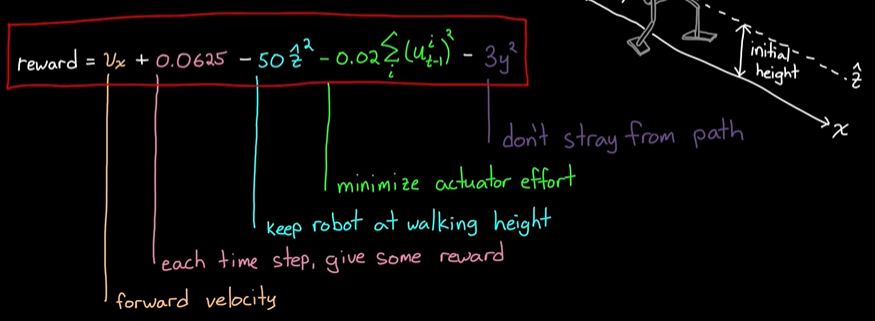 reward = vₓ + 0.0625 - 50 ẑ² - 0.02 Σᵢ (uⁱₜ₋₁)² - 3y²
initial
height
ẑ
x
don't stray from path
minimize actuator effort
keep robot at walking height
each time step, give some reward
forward velocity